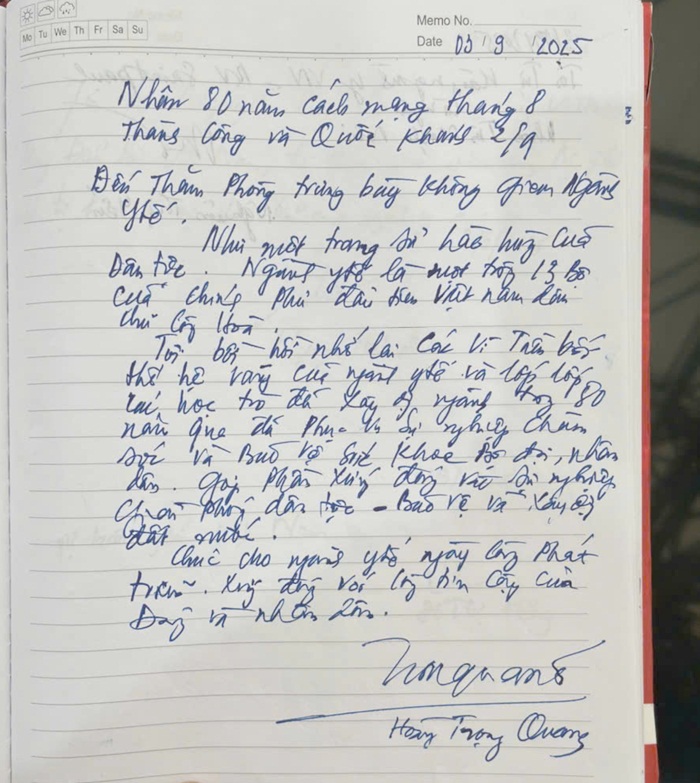 Memo No.
Mo Tu We Th Fr Sa Su
Date 03 / 9 / 2025
Nhân 80 năm Cách mạng tháng 8
Thành Công và Quốc Khánh 2/9
Đến Thăm Phòng trưng bày Không gian Ngành
Y tế.
Như một trang sử hào hùng của
Dân tộc. Ngành y tế là một trong 13 Bộ
của chính Phủ đầu tiên Việt nam dân
chủ Cộng Hoà.
Tôi bồi hồi nhớ lại các vị Tiền bối
thế hệ vàng của ngành y tế và lớp lớp
các học trò đã xây dựng ngành trong 80
năm qua đã Phục vụ Sự nghiệp Chăm
sóc và Bảo vệ Sức Khoẻ Bộ đội, nhân
dân. Góp Phần Xứng đáng vào sự nghiệp
Giải Phóng dân tộc - Bảo vệ và xây dựng
đất nước.
Chúc cho ngành y tế ngày càng Phát
triển. Xứng đáng với lòng tin cậy của
Đảng và nhân dân.
Hoàng Trọng Quang